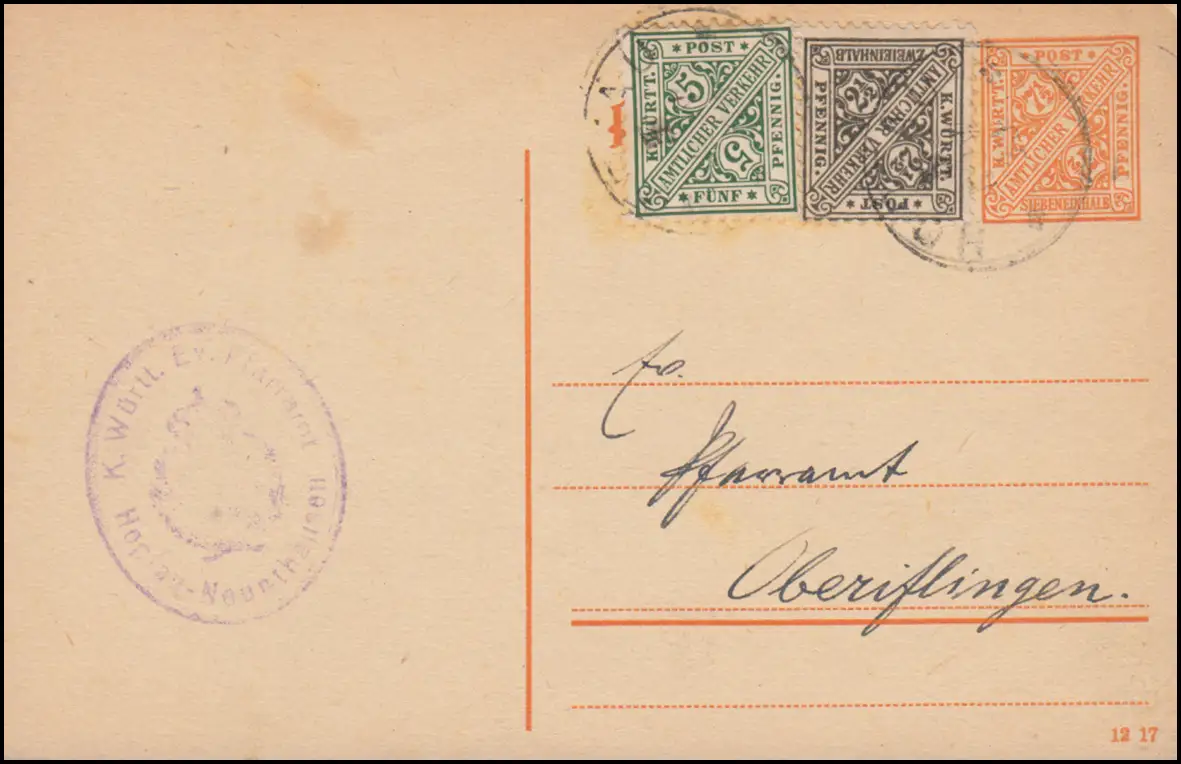 POST
K.WÜRTT.
5
AMTLICHER VERKEHR
5
PFENNIG.
FÜNF
POST
K.WÜRTT.
2½
AMTLICHER VERKEHR
2½
PFENNIG.
ZWEIEINHALB
POST
K. WÜRTT.
7½
AMTLICHER VERKEHR
7½
PFENNIG.
SIEBENEINHALB
K. Württ. Ev. Pfarramt
Pfarramt
Oberiflingen.
12 17